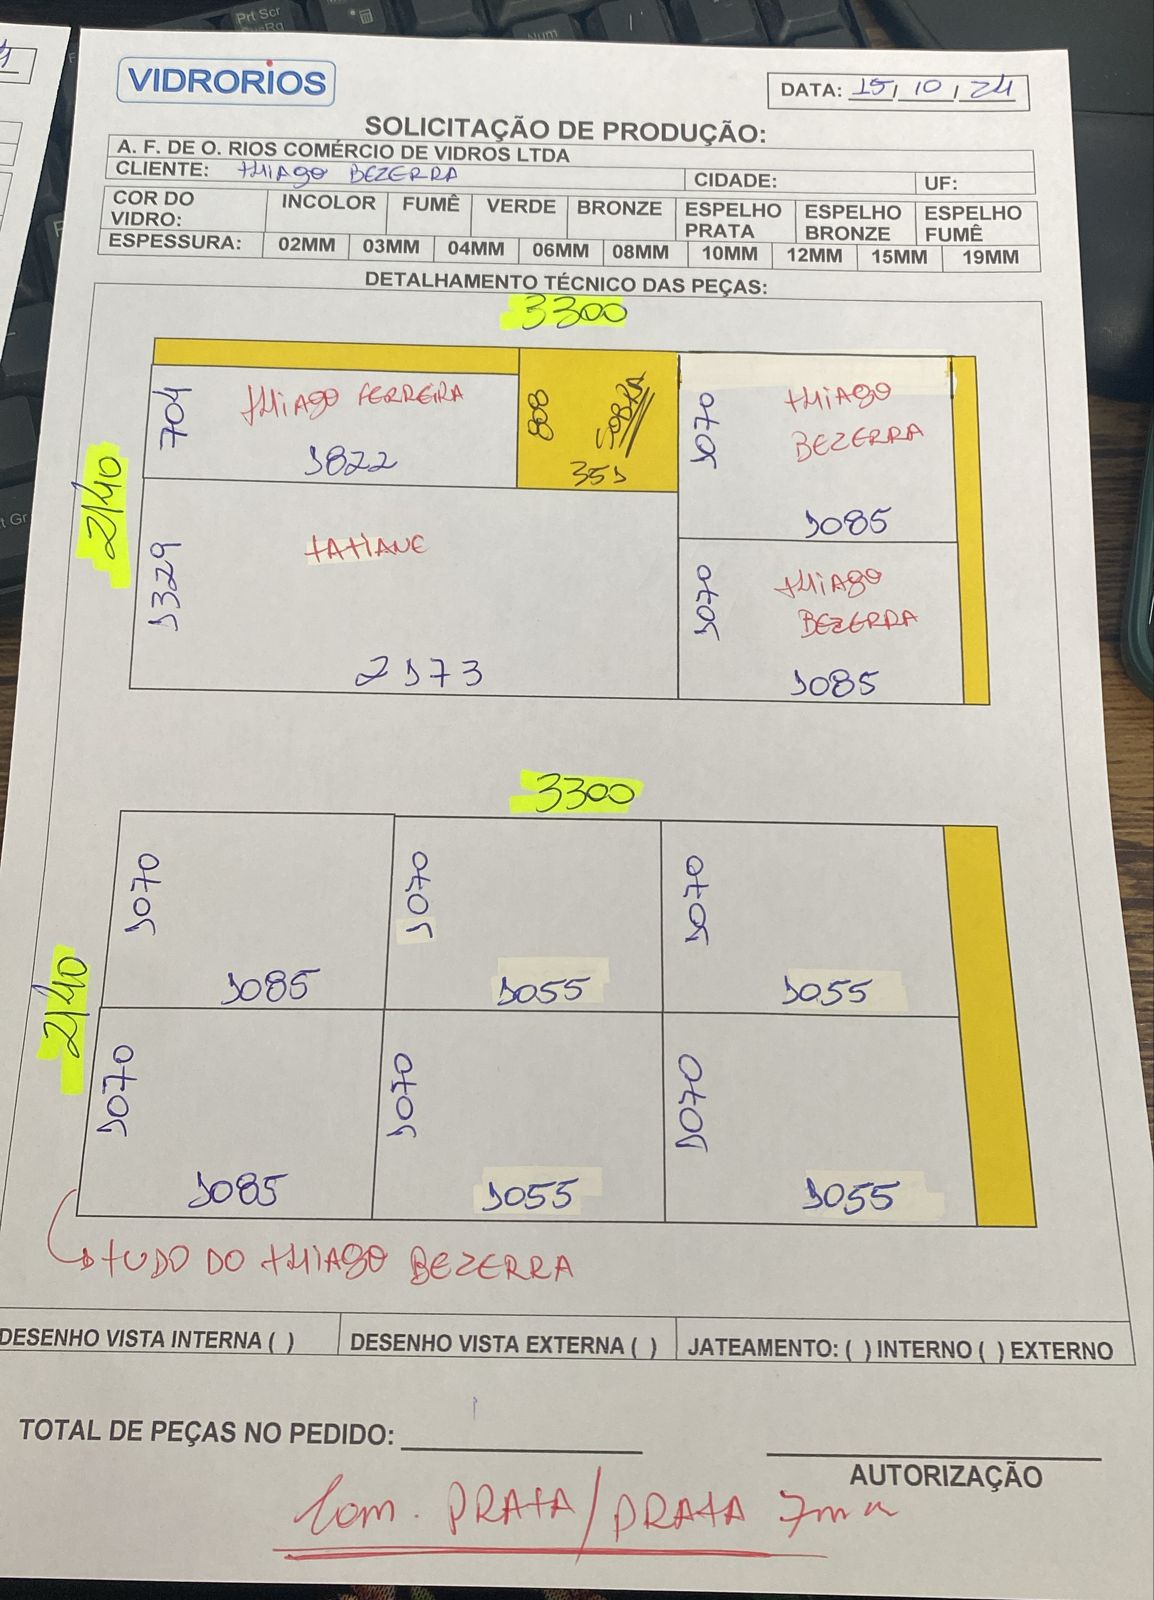 VIDRORIOS
DATA: 15 / 10 / 24
SOLICITAÇÃO DE PRODUÇÃO:
A. F. DE O. RIOS COMÉRCIO DE VIDROS LTDA
CLIENTE: THIAGO BEZERRA CIDADE: UF:
COR DO VIDRO: INCOLOR FUMÊ VERDE BRONZE ESPELHO PRATA ESPELHO BRONZE ESPELHO FUMÊ
ESPESSURA: 02MM 03MM 04MM 06MM 08MM 10MM 12MM 15MM 19MM
DETALHAMENTO TÉCNICO DAS PEÇAS:
3300
2140
704
THIAGO FERREIRA
1822
808
SOBRA
351
1070
THIAGO
BEZERRA
1085
1329
TATIANE
2173
1070
THIAGO
BEZERRA
1085
3300
2140
1070
1085
1070
1055
1070
1055
1070
1085
1070
1055
1070
1055
TUDO DO THIAGO BEZERRA
DESENHO VISTA INTERNA ( ) DESENHO VISTA EXTERNA ( ) JATEAMENTO: ( ) INTERNO ( ) EXTERNO
TOTAL DE PEÇAS NO PEDIDO:
AUTORIZAÇÃO
Lam. PRATA/PRATA 7mm
Prt Scr
Num
t Gr